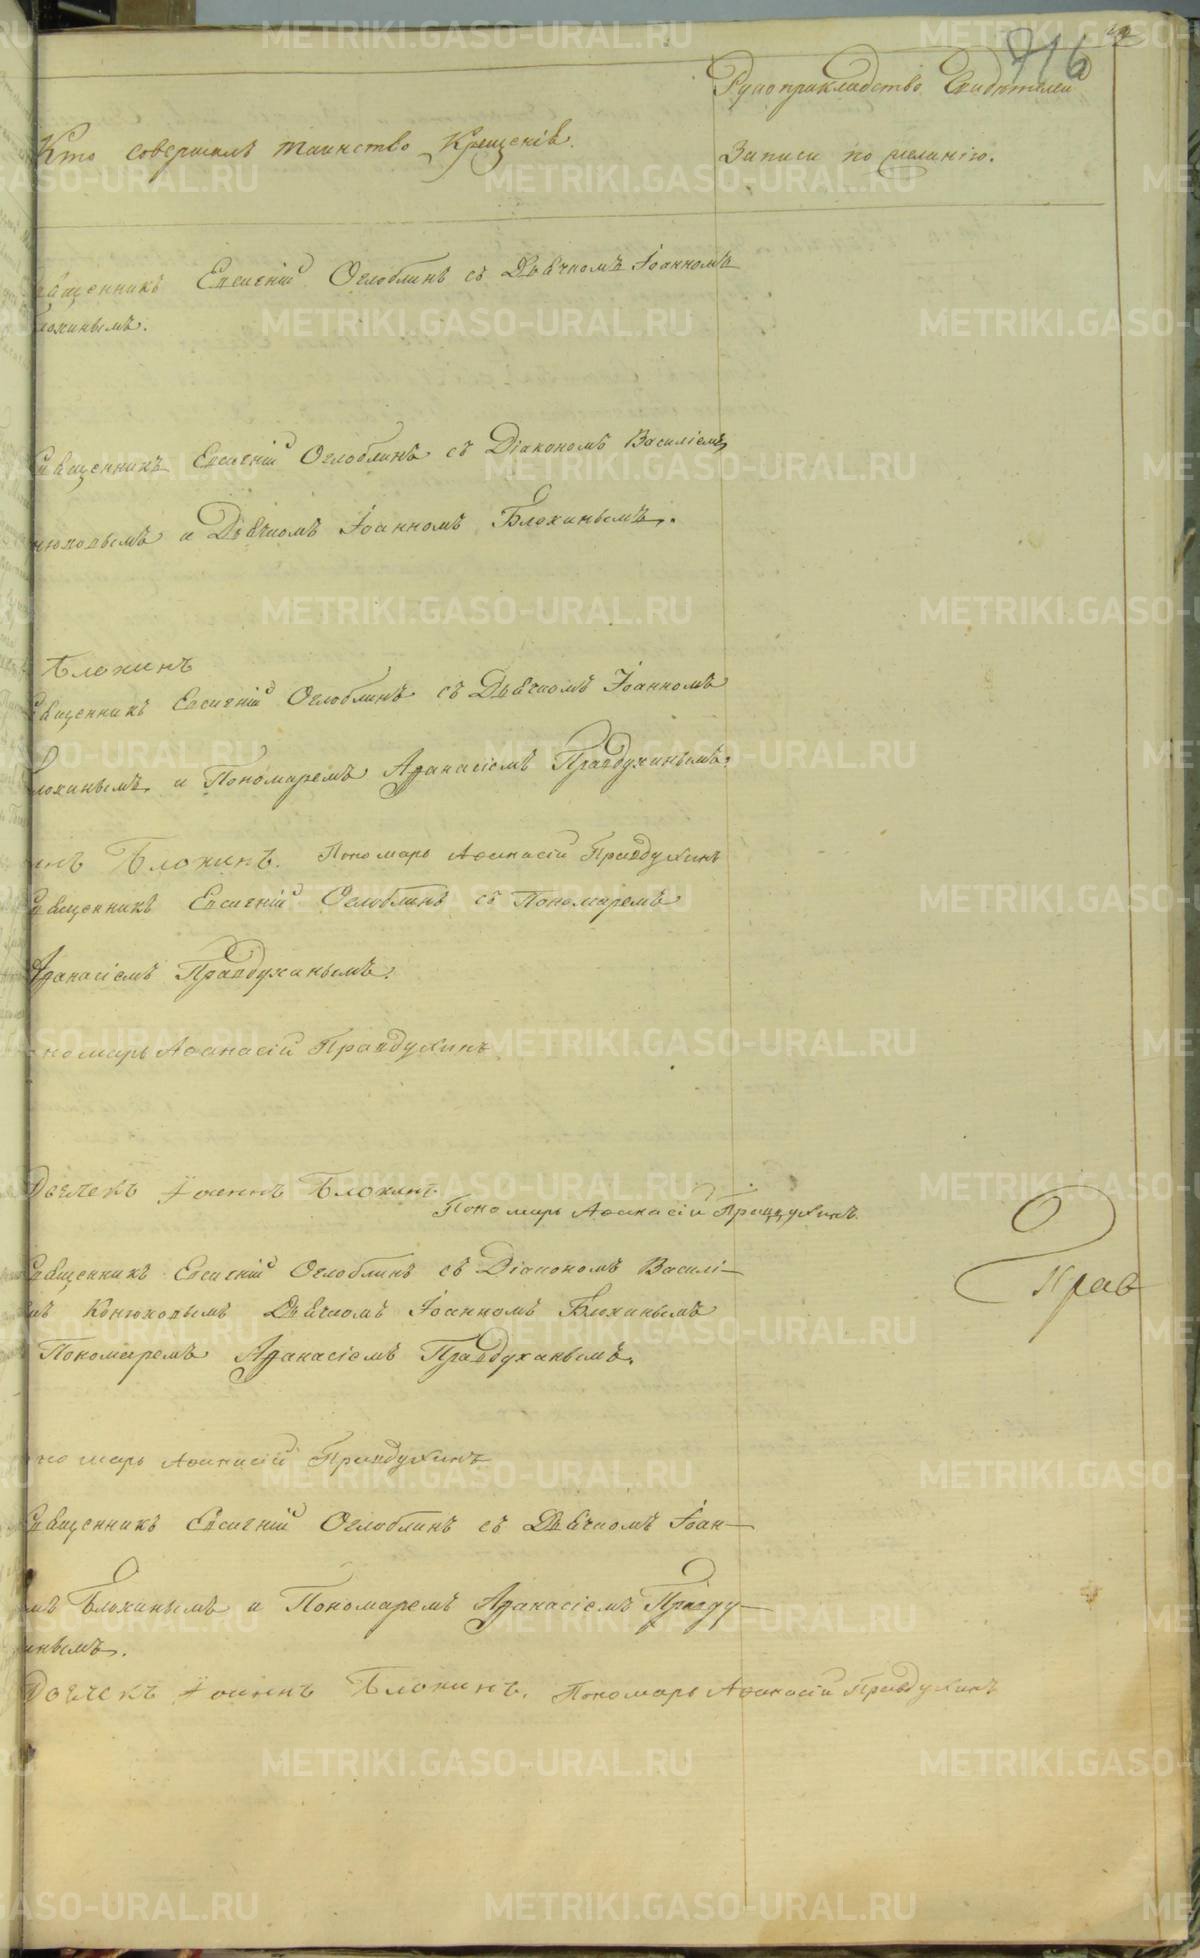 716
Рукоприкладство Свидѣтелей
Кто совершалъ таинство Крещенія.
Записи по желанію.
священникъ Евсигній Оглоблинъ съ Дьячкомъ Іоанномъ
Блохинымъ.
Священникъ Евсигній Оглоблинъ съ Діакономъ Василіемъ
и Дьячкомъ Іоанномъ Блохинымъ.
Блохинъ
Священникъ Евсигній Оглоблинъ съ Дьячкомъ Іоанномъ
Блохинымъ и Пономаремъ Афанасіемъ Правдухинымъ.
Блохинъ. Пономарь Афанасій Правдухинъ
Священникъ Евсигній Оглоблинъ съ Пономаремъ
Афанасіемъ Правдухинымъ.
Пономарь Афанасій Правдухинъ.
Дьячекъ Іоаннъ Блохинъ.
Пономарь Афанасій Правдухинъ.
Священникъ Евсигній Оглоблинъ съ Діакономъ Василі-
Дьячкомъ Іоанномъ Блохинымъ
Пономаремъ Афанасіемъ Правдухинымъ.
Прав
Пономарь Афанасій Правдухинъ
Священникъ Евсигній Оглоблинъ съ Дьячкомъ Іоан-
мъ Блохинымъ и Пономаремъ Афанасіемъ Правду-
инымъ.
Дьячекъ Іоаннъ Блохинъ. Пономарь Афанасій Правдухинъ
METRIKI.GASO-URAL.RU